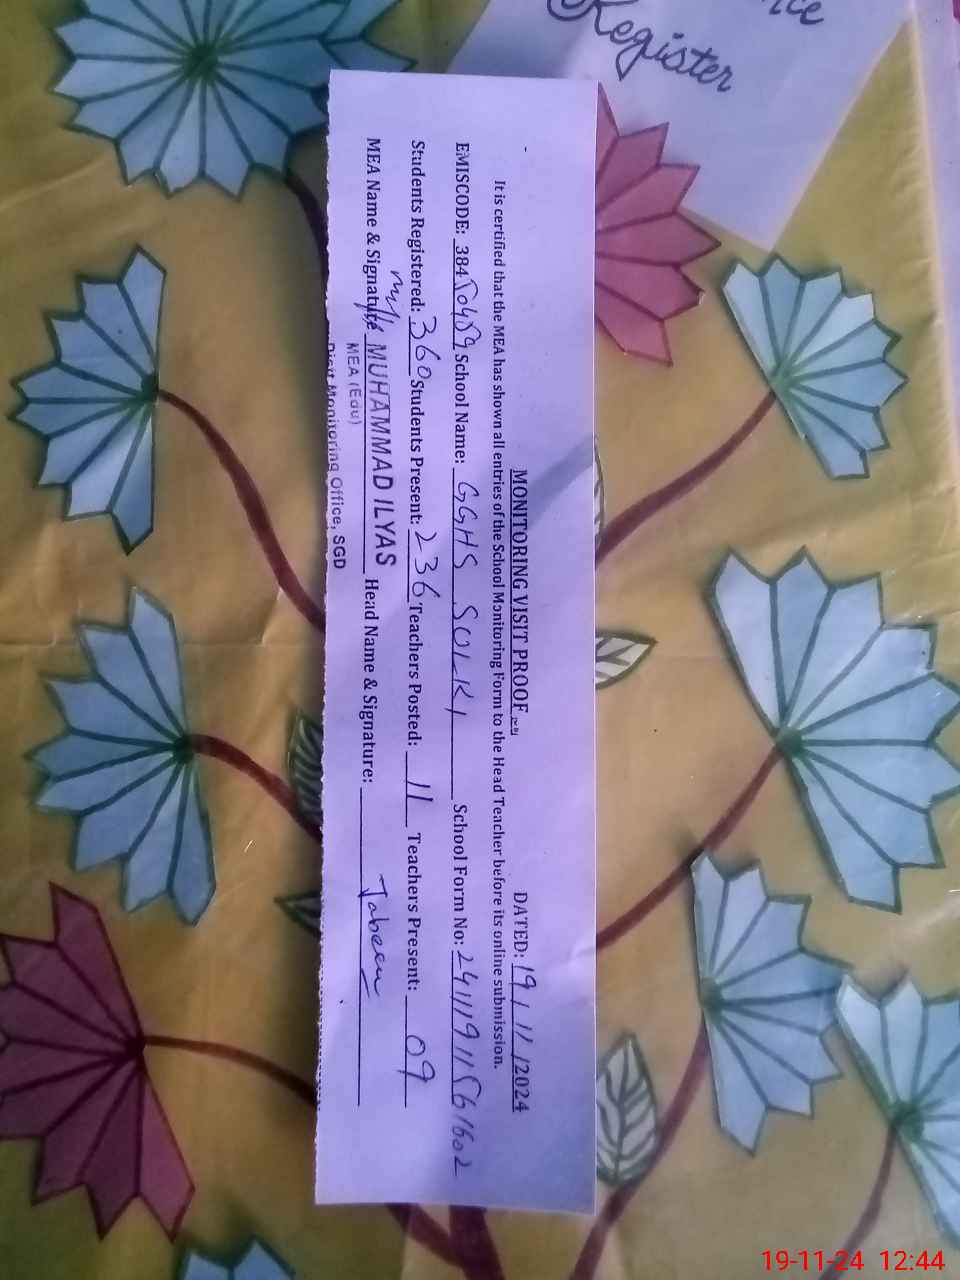 Register
MONITORING VISIT PROOF
DATED: 19/11/2024
It is certified that the MEA has shown all entries of the School Monitoring Form to the Head Teacher before its online submission.
EMISCODE: 38450489 School Name: GGHS SOLKI School Form No:
Students Registered: 360 Students Present: 236 Teachers Posted: 11 Teachers Present: 09
MEA Name & Signature MUHAMMAD ILYAS Head Name & Signature: Tabeen
MEA (Edu)
Monitoring Office, SGD
19-11-24 12:44